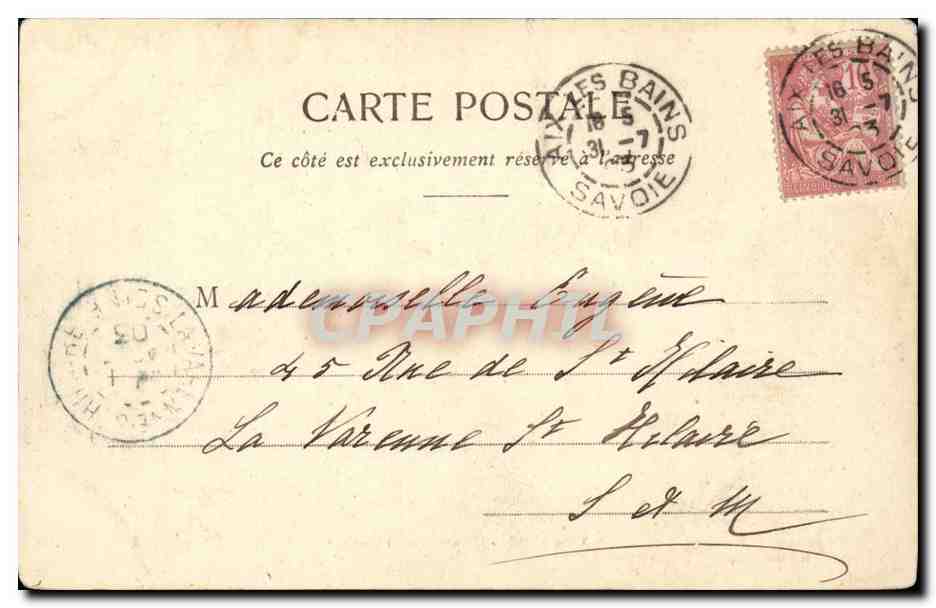 CARTE POSTALE
Ce côté est exclusivement réservé à l'adresse
AIX-LES-BAINS
16 5
31 -7
03
SAVOIE
AIX-LES-BAINS
16 5
31 -7
03
SAVOIE
10
Mademoiselle Eugène
45 Rue de St Hilaire
La Varenne St Hilaire
S et M
LA VARENNE
03
CPAPHIL